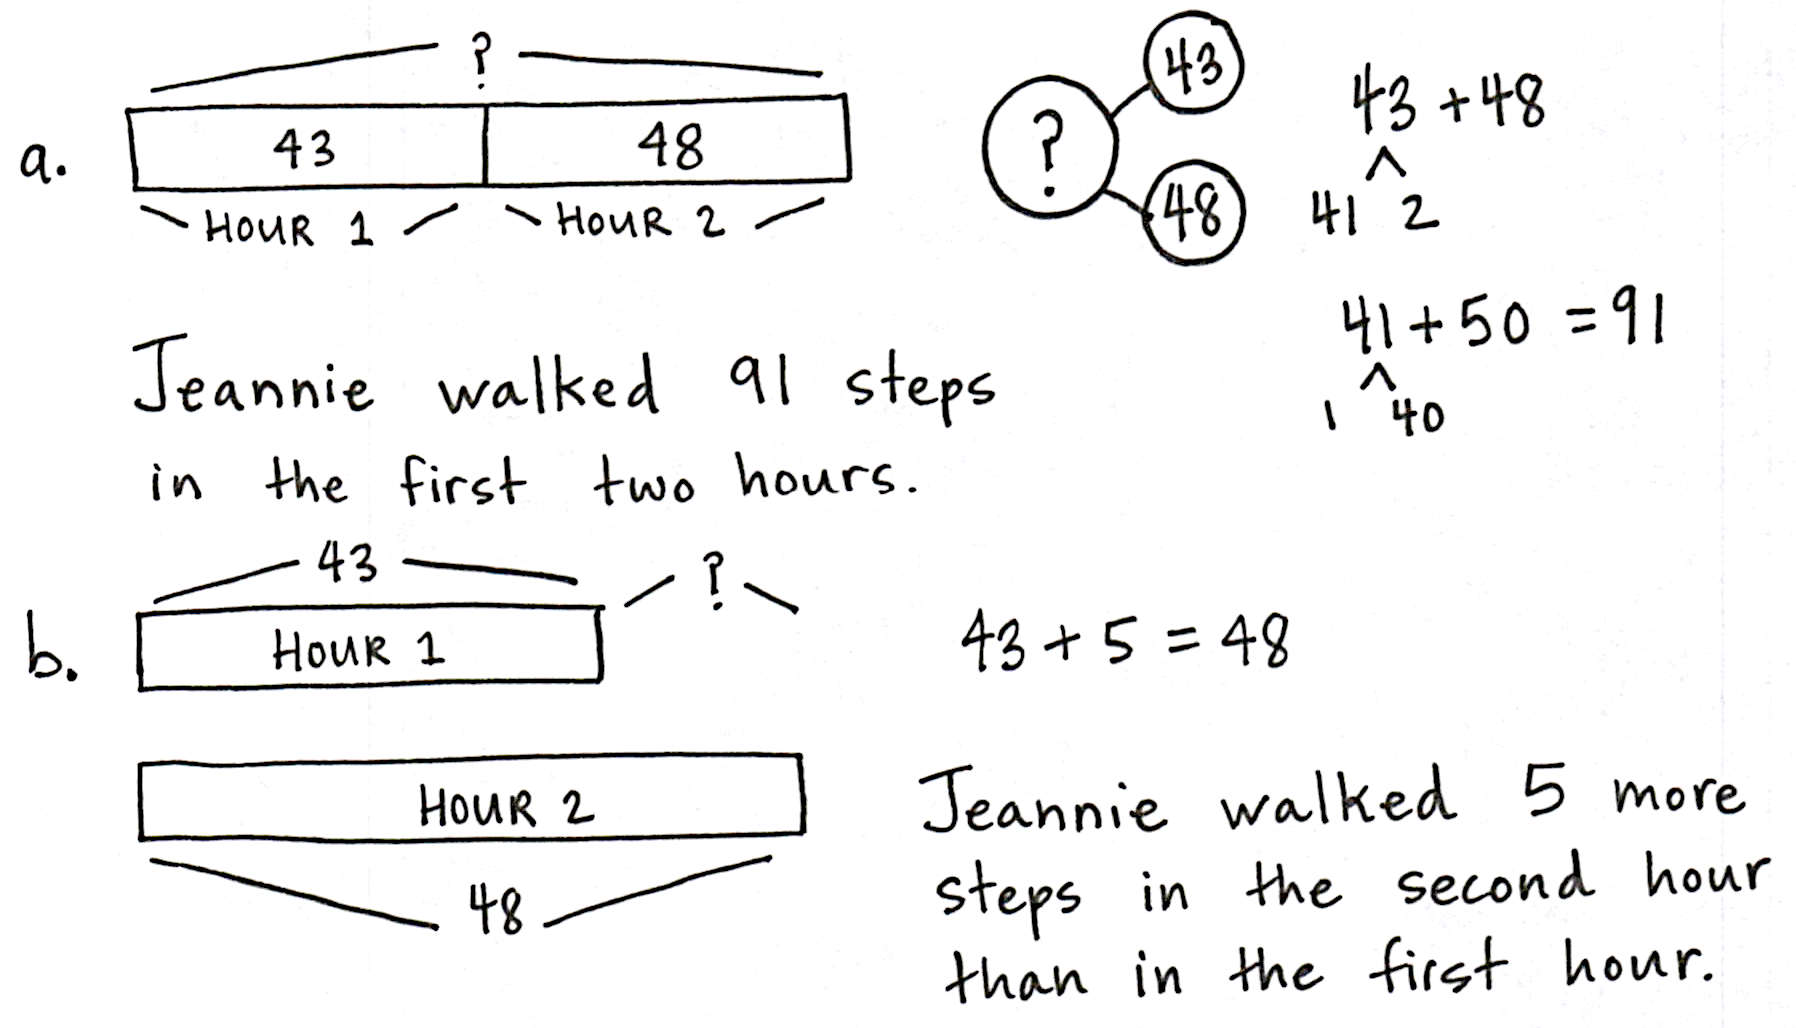 a.
?
43 48
HOUR 1 HOUR 2
?
43
48
43 + 48
41 2
41 + 50 = 91
1 40
Jeannie walked 91 steps
in the first two hours.
b.
43 ?
HOUR 1
HOUR 2
48
43 + 5 = 48
Jeannie walked 5 more
steps in the second hour
than in the first hour.